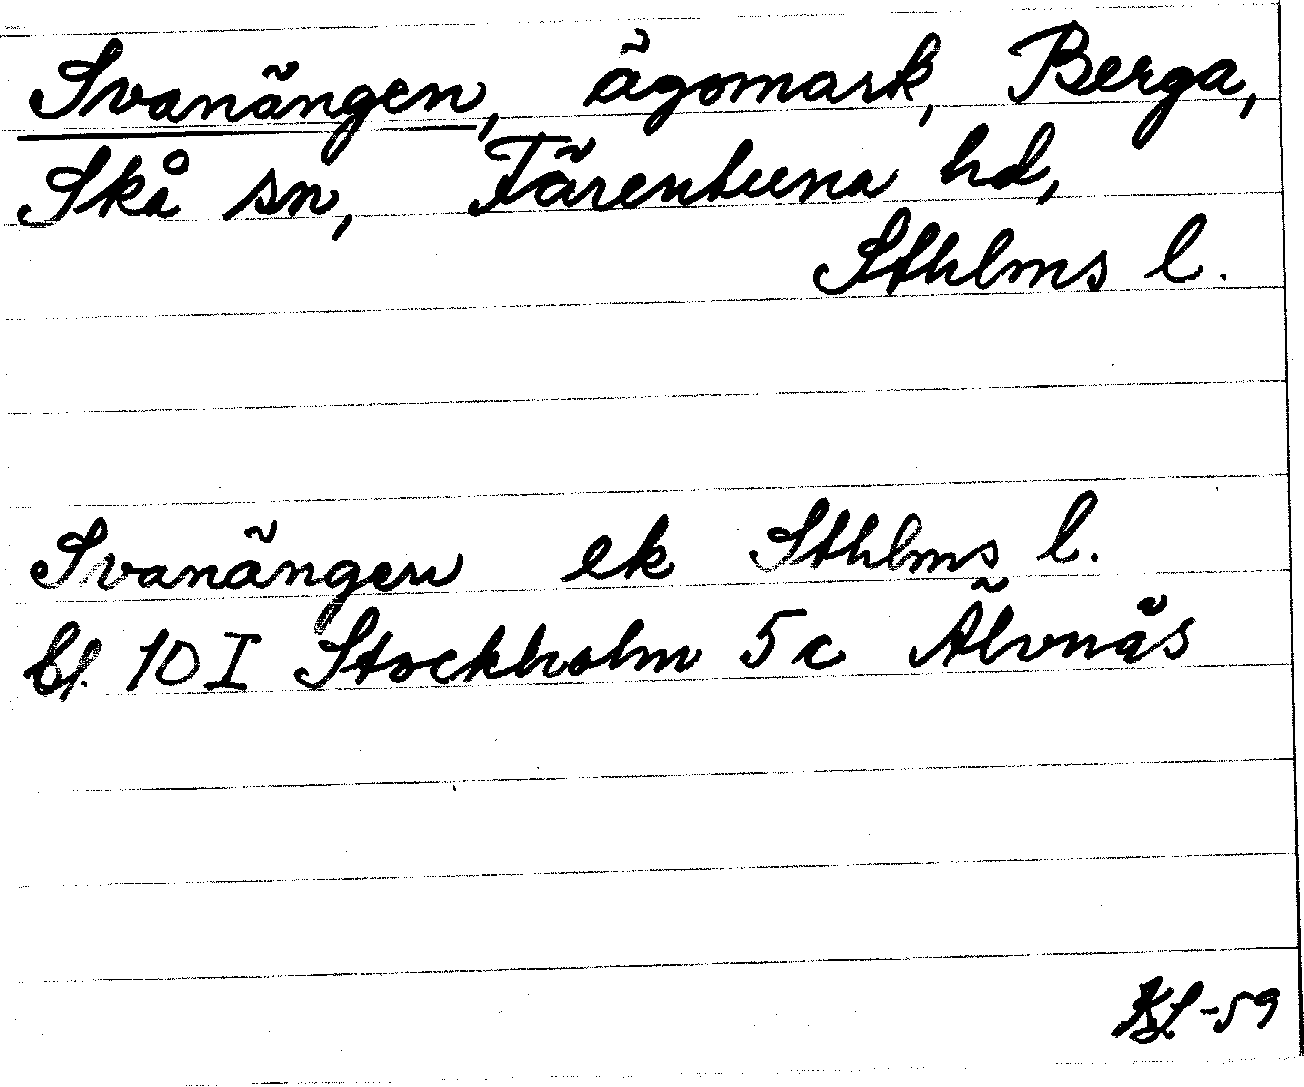 Svanängen, ägomark, Berga,
Skå sn, Färentuna hd,
Sthlms l.
Svanängen ek Sthlms l.
bl. 10 I Stockholm 5 c Älvnäs
KL -59